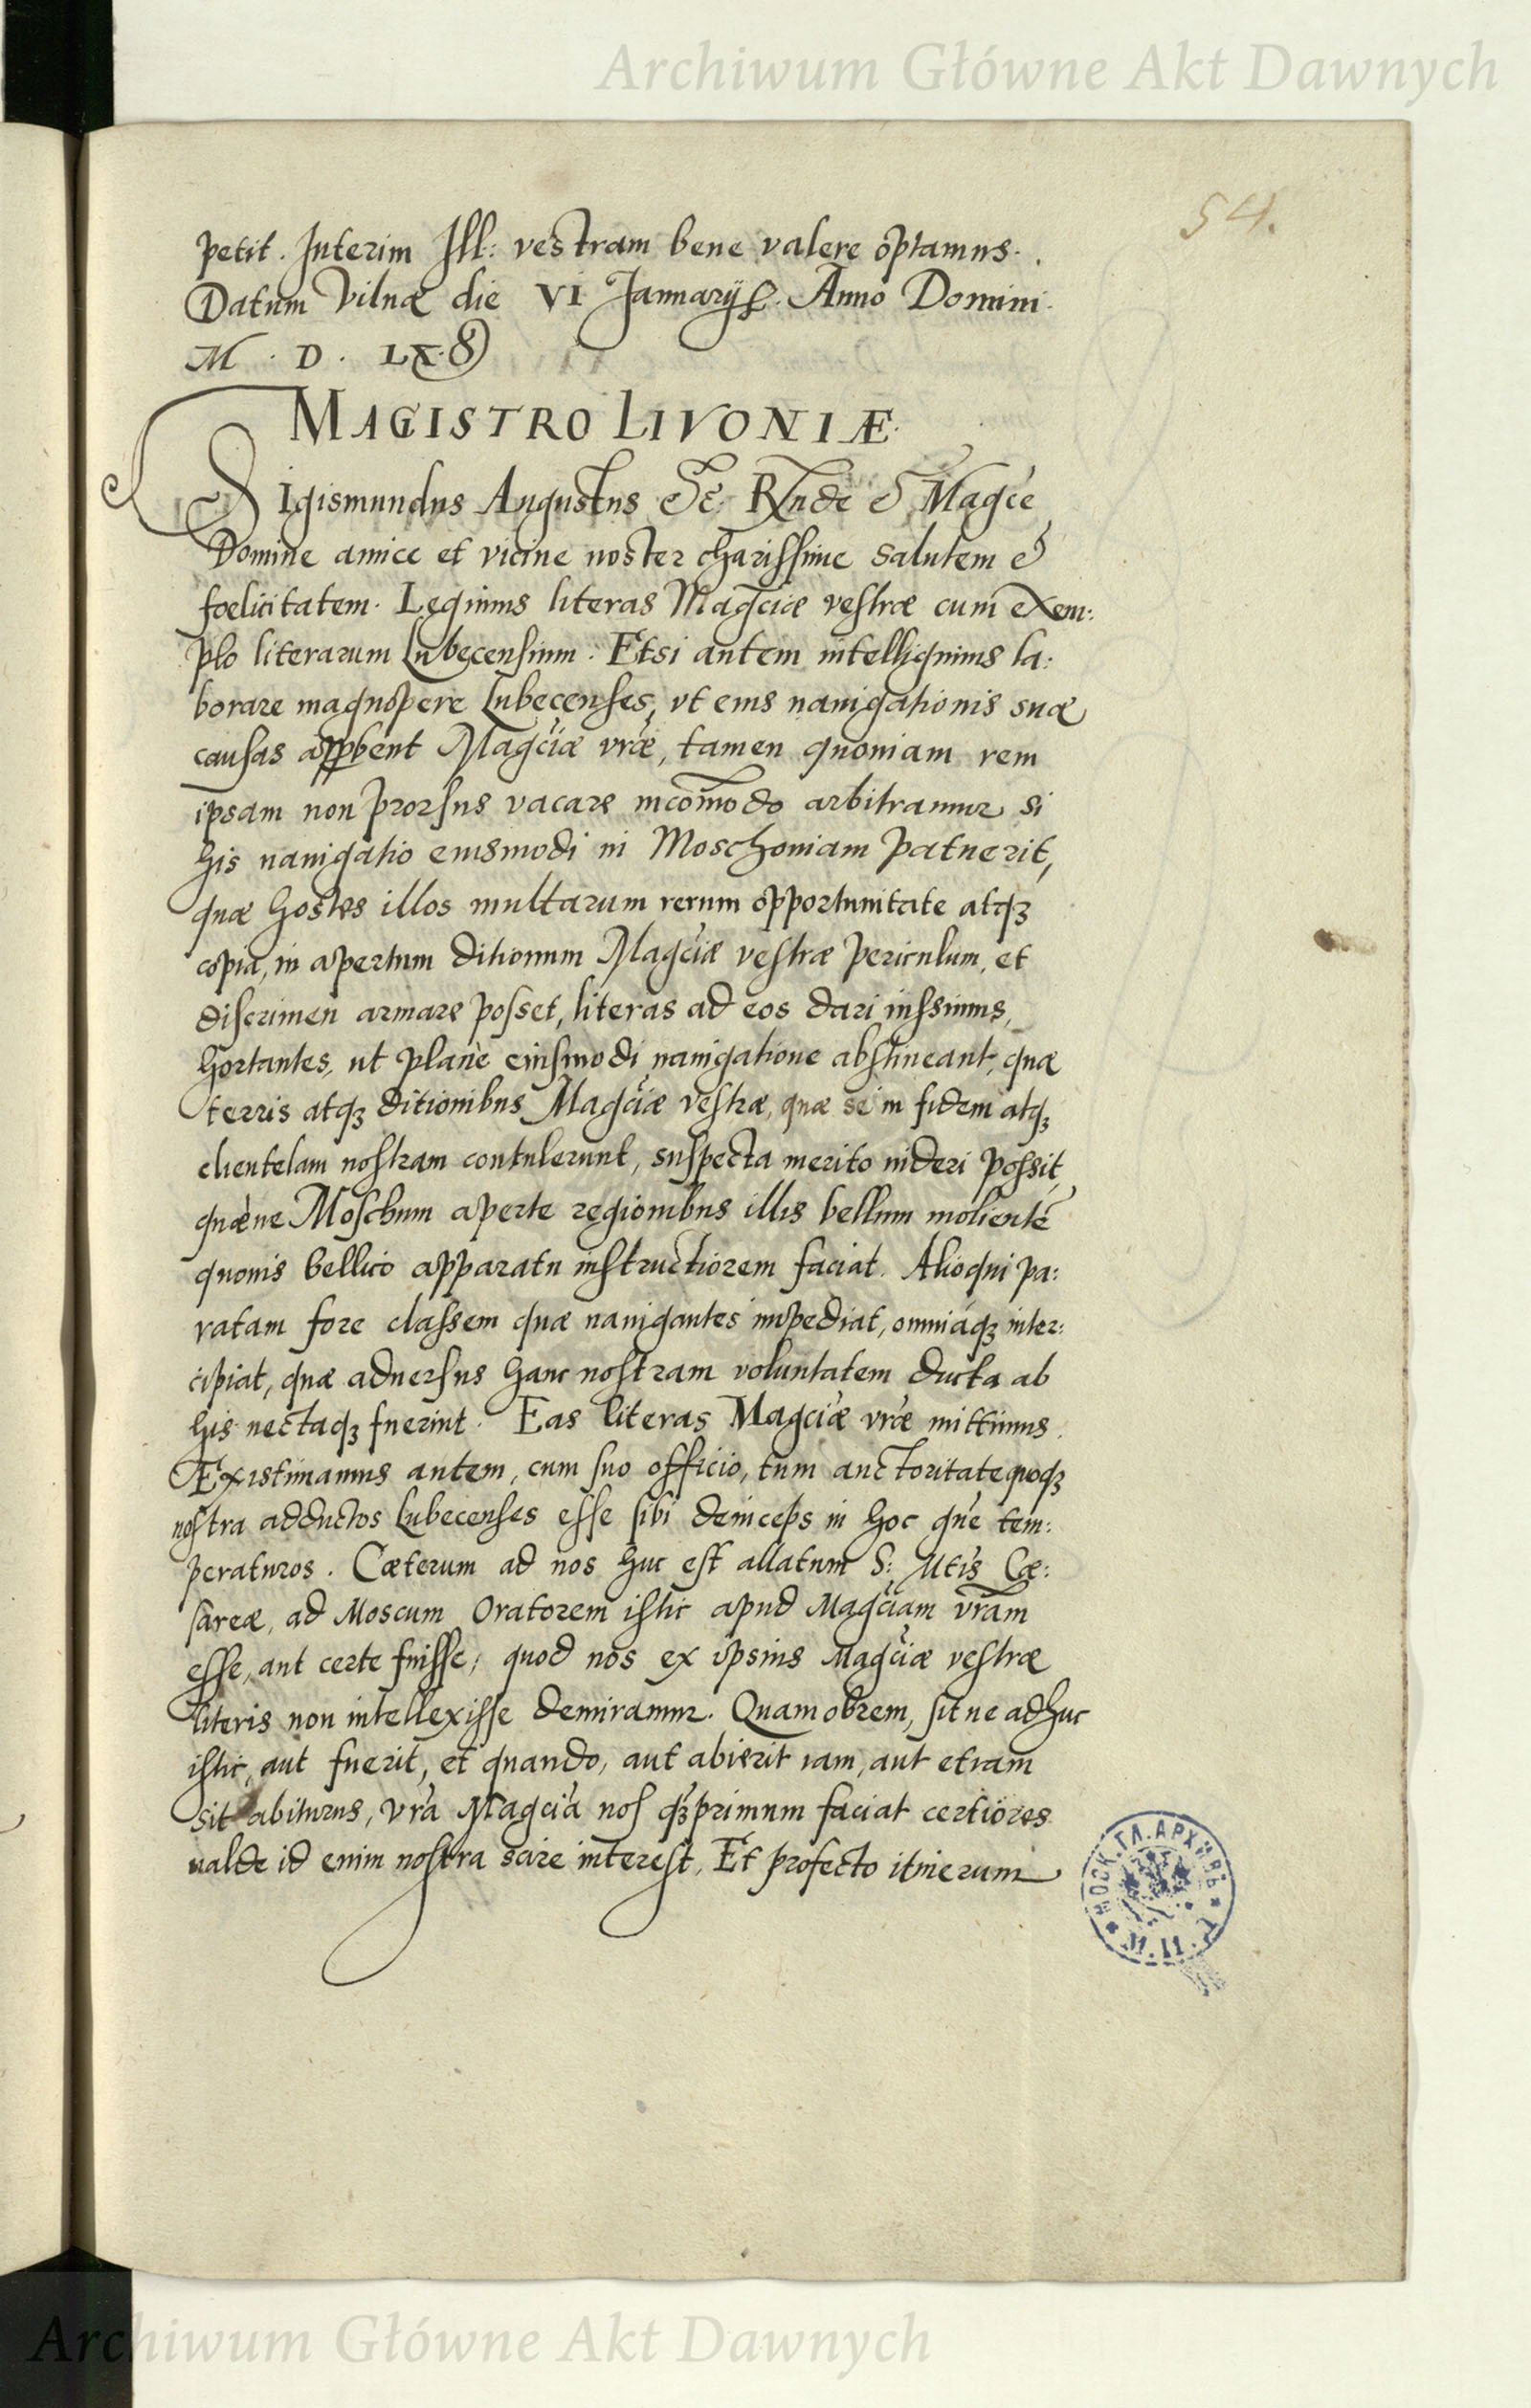 Archiwum Główne Akt Dawnych
54.
petit. Interim Ill: vestram bene valere optamus.
Datum Vilnæ die VI Januarij. Anno Domini
M. D. LX.
MAGISTRO LIVONIÆ.
SIgismundus Augustus &c. Rnde & Magce
Domine amice et vicine noster charissime salutem &
foelicitatem. Legimus literas Magciæ vestræ cum exem:
plo literarum Lubecensium. Etsi autem intelligimus la:
borare magnopere Lubecenses, vt eius nauigationis suæ
causas approbent Magciæ vræ, tamen quoniam rem
ipsam non prorsus vacare incomodo arbitramur si
his nauigatio eiusmodi in Moschouiam patuerit,
quæ hostes illos multarum rerum opportunitate atq3
copia, in apertum ditionum Magciæ vestræ periculum, et
discrimen armare posset, literas ad eos dari iussimus,
hortantes, ut planè eiusmodi nauigatione abstineant, quæ
terris atq3 ditionibus Magciæ vestræ, quæ se in fidem atq3
clientelam nostram contulerunt, suspecta merito uideri possit,
quæue Moschum aperte regionibus illis bellum molientē
quouis bellico apparatu instructiorem faciat. Alioqui pa:
ratam fore classem quæ nauigantes impediat, omniaq3 inter:
cipiat, quæ aduersus hanc nostram voluntatem ducta ab
his uectaq3 fuerint. Eas literas Magciæ vræ mittimus.
Existimamus autem, cum suo officio, tum auctoritate quoq3
nostra adductos Lubecenses esse sibi deinceps in hoc que tem:
peraturos. Cæterum ad nos huc est allatum S: Mtis Cæ:
sareæ, ad Moscum Oratorem istic apud Magciam vram
esse, aut certe fuisse, quod nos ex ipsius Magciæ vestræ
literis non intellexisse demiramur. Quamobrem, sit ne adhuc
istic, aut fuerit, et quando, aut abierit iam, aut etiam
sit abiturus, vra Magcia nos q3primum faciat certiores
ualde id enim nostra scire interest. Et profecto itinerum
МОСК. ГЛ. АРХИВЪ
М. II. Д.
Archiwum Główne Akt Dawnych